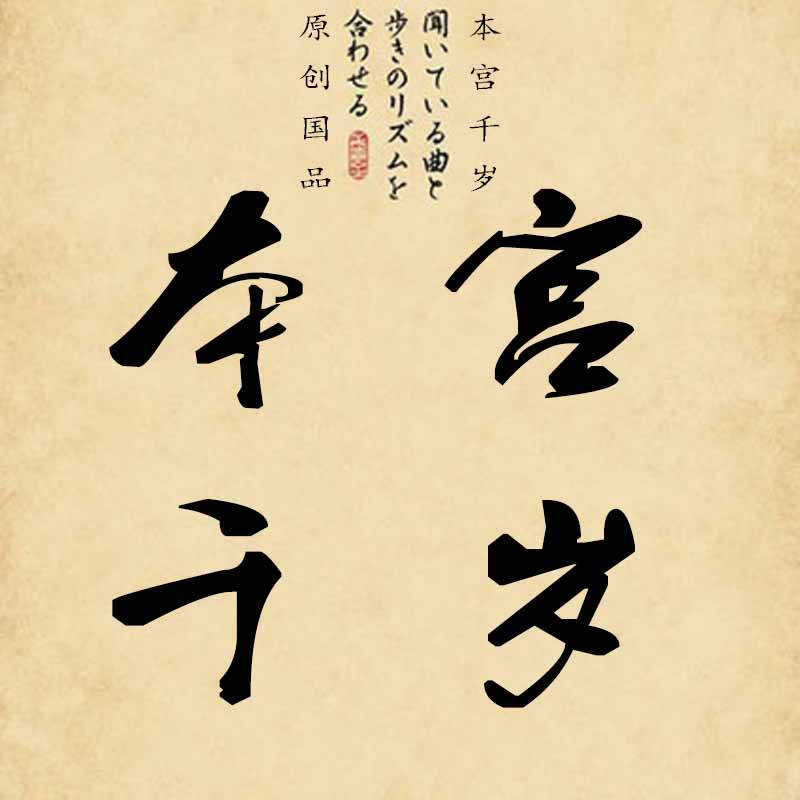 本宫千岁
聞いている曲と
歩きのリズムを
合わせる
原创国品
本宫
千岁